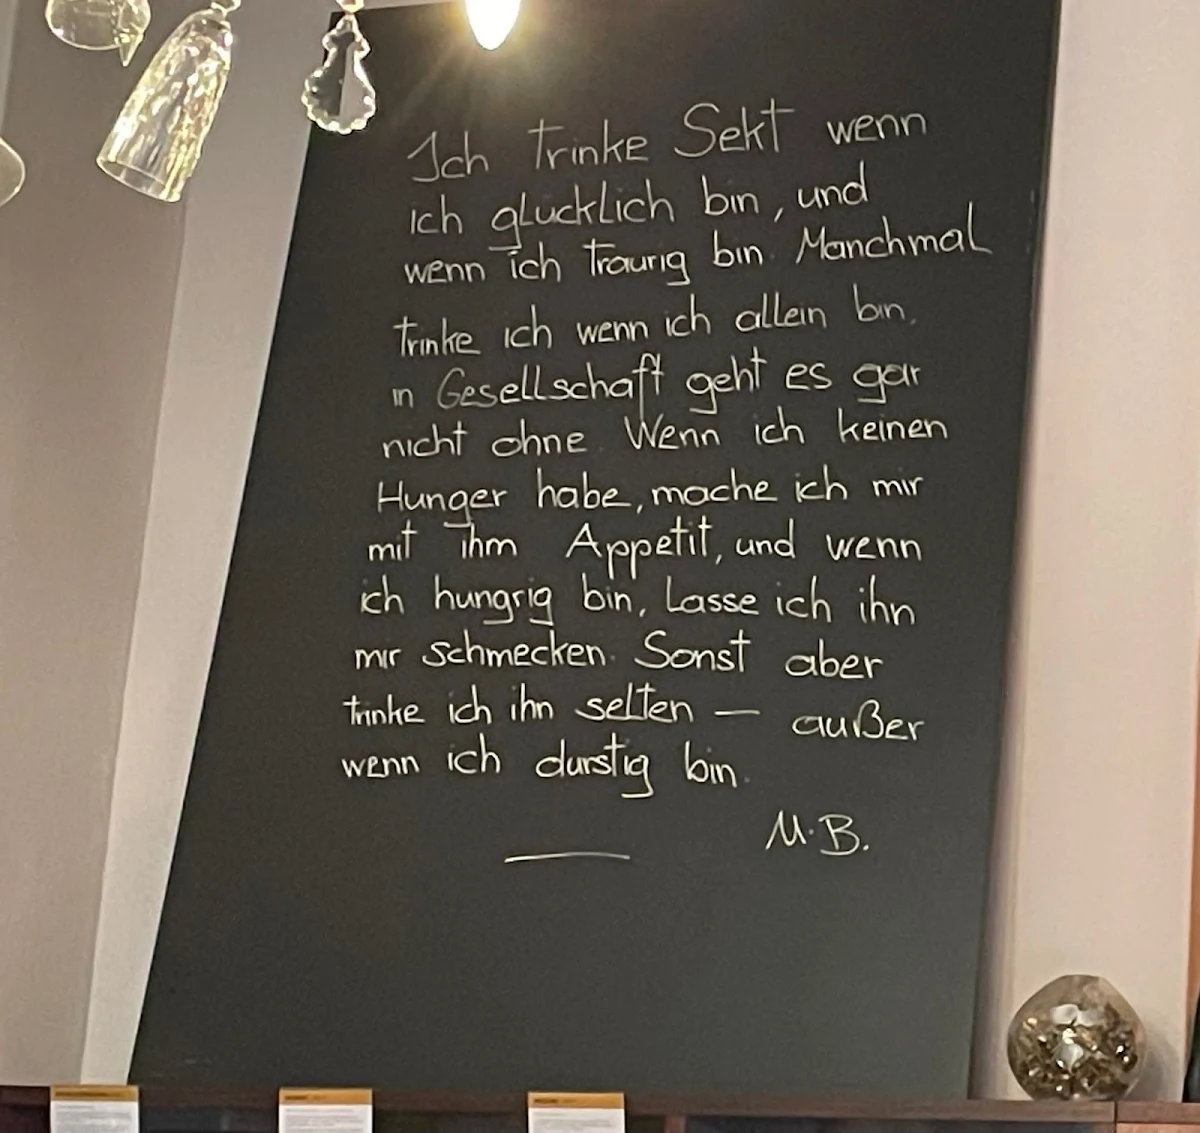 Ich trinke Sekt wenn
ich glücklich bin, und
wenn ich traurig bin. Manchmal
trinke ich wenn ich allein bin,
in Gesellschaft geht es gar
nicht ohne. Wenn ich keinen
Hunger habe, mache ich mir
mit ihm Appetit, und wenn
ich hungrig bin, lasse ich ihn
mir schmecken. Sonst aber
trinke ich ihn selten — außer
wenn ich durstig bin.
M.B.